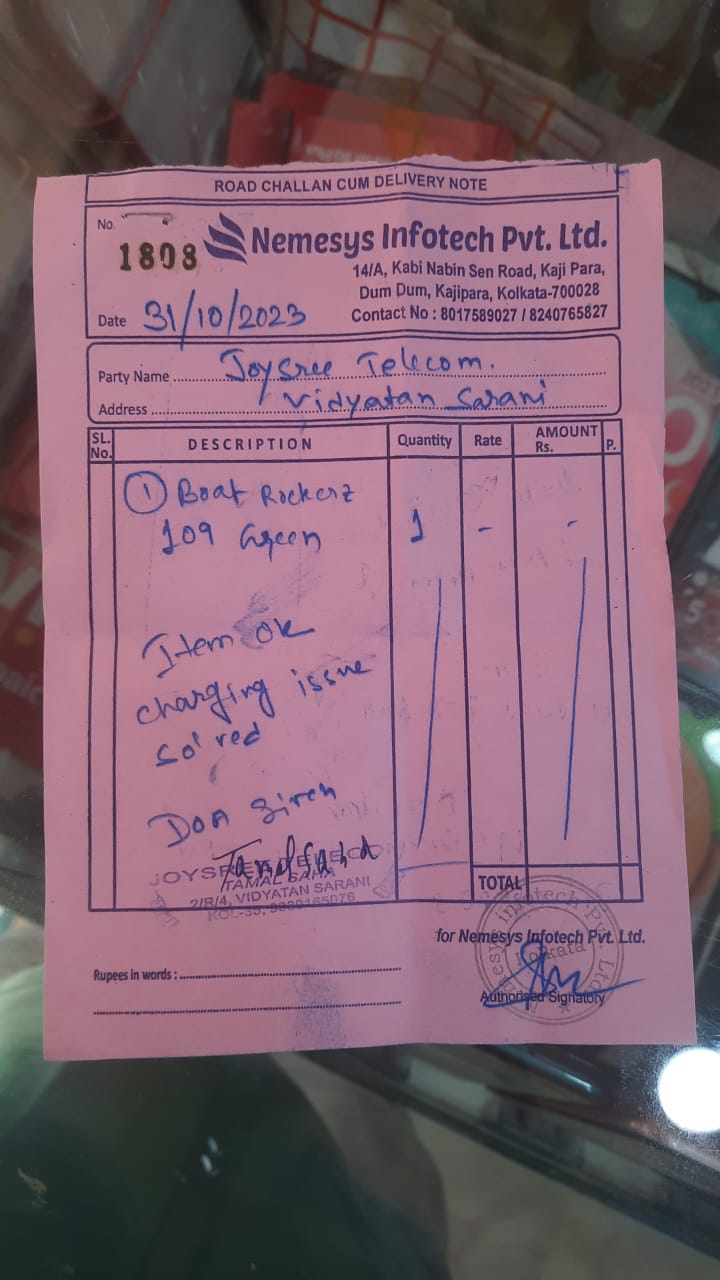 ROAD CHALLAN CUM DELIVERY NOTE
No.
1808
Nemesys Infotech Pvt. Ltd.
14/A, Kabi Nabin Sen Road, Kaji Para,
Dum Dum, Kajipara, Kolkata-700028
Contact No : 8017589027 / 8240765827
Date 31/10/2023
Party Name Joysree Telecom.
Address Vidyatan Sarani
SL. No. DESCRIPTION Quantity Rate AMOUNT Rs. P.
① Boat Rockerz
109 Green 1 - -
Item Ok
charging issue
so'ved
DOA given
JOYSREE TELECOM
TAMAL SAHA
2/R/4, VIDYATAN SARANI
KOL-35,
TOTAL
for Nemesys Infotech Pvt. Ltd.
Nemesys Infotech Pvt. Ltd.
Kolkata
Authorised Signatory
Rupees in words :